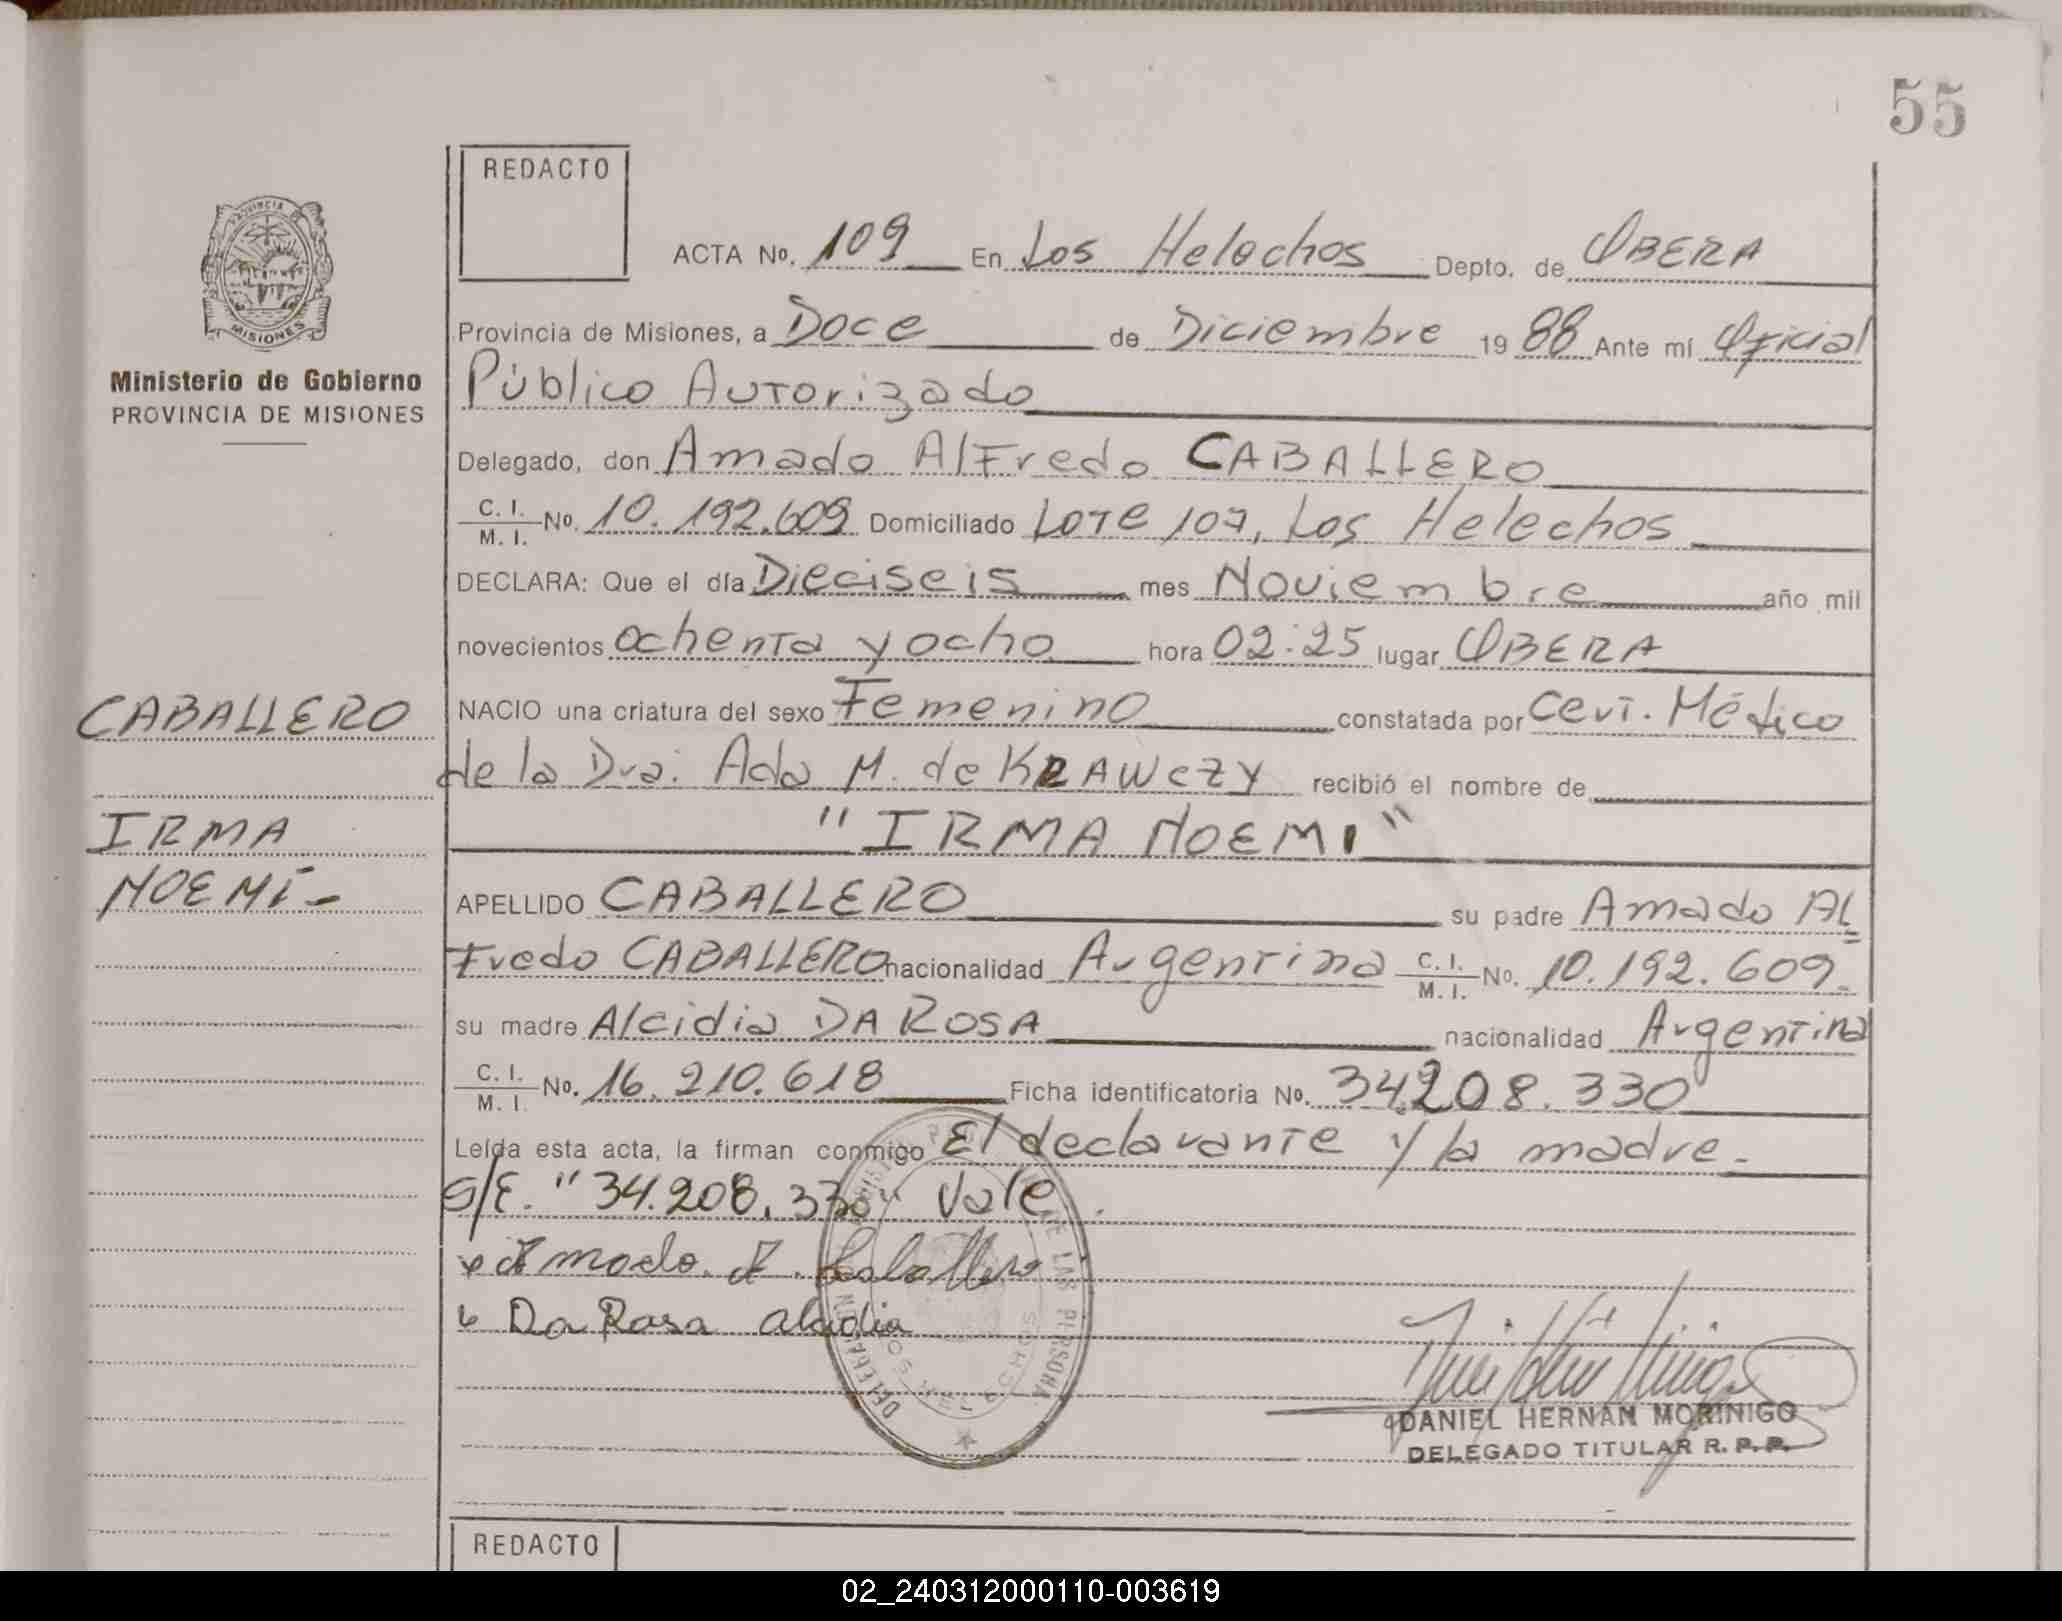 55
REDACTO
PROVINCIA DE
MISIONES
Ministerio de Gobierno
PROVINCIA DE MISIONES
ACTA No. 109 En Los Helechos Depto. de OBERA
Provincia de Misiones, a Doce de Diciembre 19 88 Ante mí Oficial
Público Autorizado
Delegado, don Amado Alfredo CABALLERO
C. I. / M. I. No. 10.192.609 Domiciliado Lote 107, Los Helechos
DECLARA: Que el día Dieciseis mes Noviembre año mil
novecientos ochenta y ocho hora 02:25 lugar OBERA
NACIO una criatura del sexo Femenino constatada por Cert. Médico
de la Dra. Ada M. de KRAWCZY recibió el nombre de
"IRMA NOEMI"
CABALLERO
IRMA
NOEMÍ-
APELLIDO CABALLERO su padre Amado Al
fredo CABALLERO nacionalidad Argentina C. I. / M. I. No. 10.192.609
su madre Alcidia DA ROSA nacionalidad Argentina
C. I. / M. I. No. 16.210.618 Ficha identificatoria No. 34.208.330
Leída esta acta, la firman conmigo El declarante y la madre.-
S/E. "34.208.330" Vale.
Amado. A. Caballero
Da Rosa alcidia
DE LAS PERSONA
DELEGACION
DANIEL HERNAN MORINIGO
DELEGADO TITULAR R. P. P.
REDACTO
02_240312000110-003619